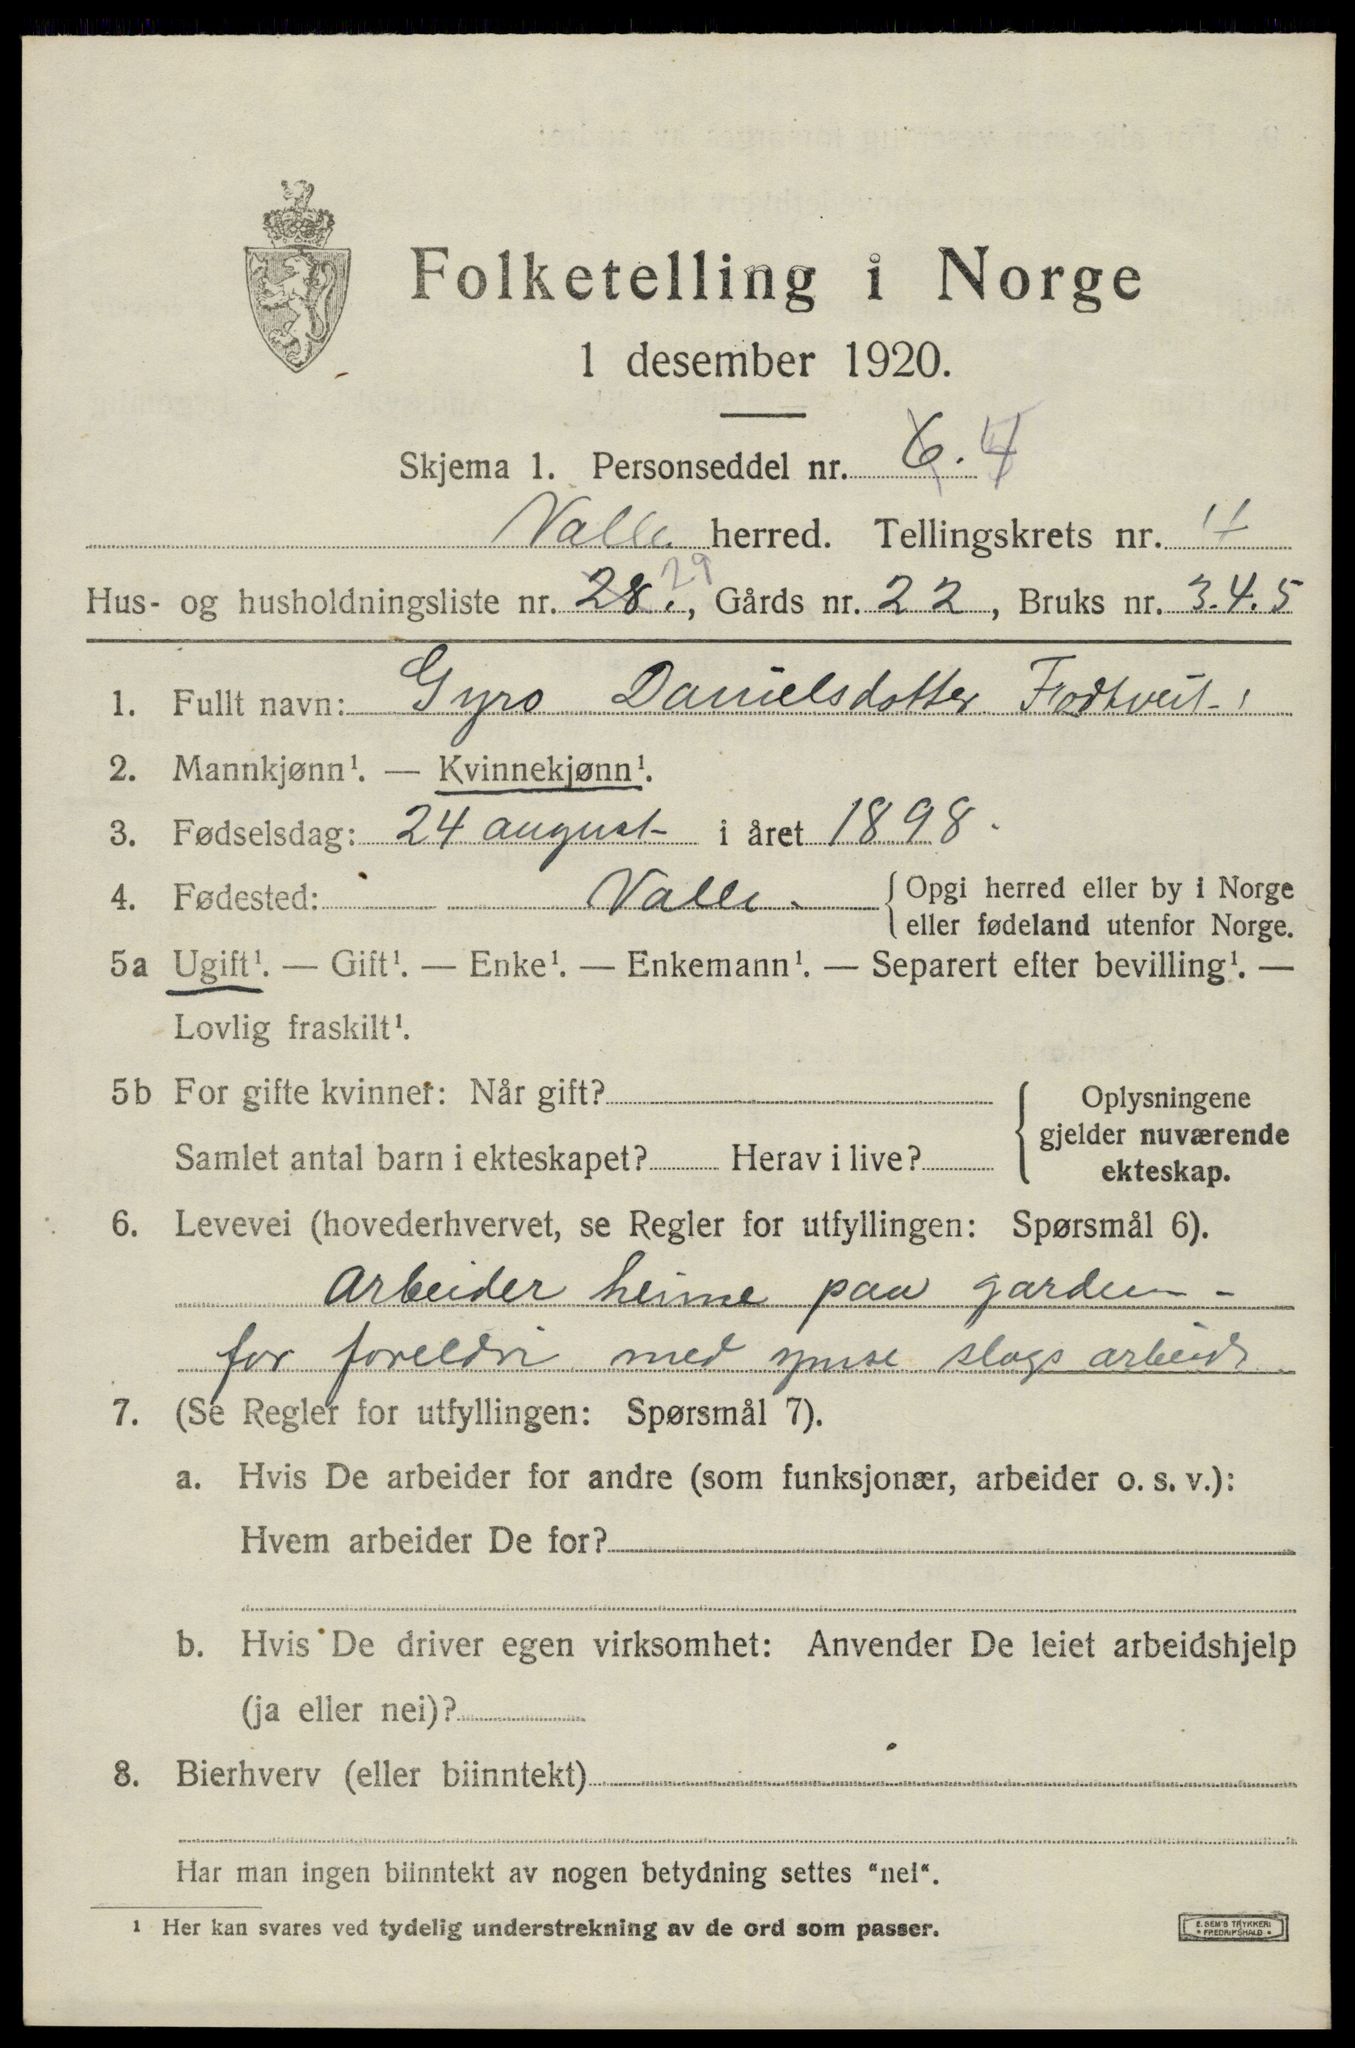 Folketelling i Norge
1 desember 1920.
Skjema 1. Personseddel nr. 6. 4
Valle herred. Tellingskrets nr. 4
Hus- og husholdningsliste nr. 28. 29, Gårds nr. 22, Bruks nr. 3.4.5
1. Fullt navn: Gyro Danielsdotter Flodtveit
2. Mannkjønn¹. — Kvinnekjønn¹.
3. Fødselsdag: 24 august i året 1898.
4. Fødested: Valle. { Opgi herred eller by i Norge
eller fødeland utenfor Norge.
5a Ugift¹. — Gift¹. — Enke¹. — Enkemann¹. — Separert efter bevilling¹. —
Lovlig fraskilt¹.
5b For gifte kvinner: Når gift?
Samlet antal barn i ekteskapet? Herav i live?
Oplysningene
gjelder nuværende
ekteskap.
6. Levevei (hovederhvervet, se Regler for utfyllingen: Spørsmål 6).
Arbeider heime paa garden -
for foreldri med ymse slags arbeide
7. (Se Regler for utfyllingen: Spørsmål 7).
a. Hvis De arbeider for andre (som funksjonær, arbeider o. s. v.):
Hvem arbeider De for?
b. Hvis De driver egen virksomhet: Anvender De leiet arbeidshjelp
(ja eller nei)?
8. Bierhverv (eller biinntekt)
Har man ingen biinntekt av nogen betydning settes "nei".
1 Her kan svares ved tydelig understrekning av de ord som passer.
E. SEM'S TRYKKERI
* FREDRIKSHALD *